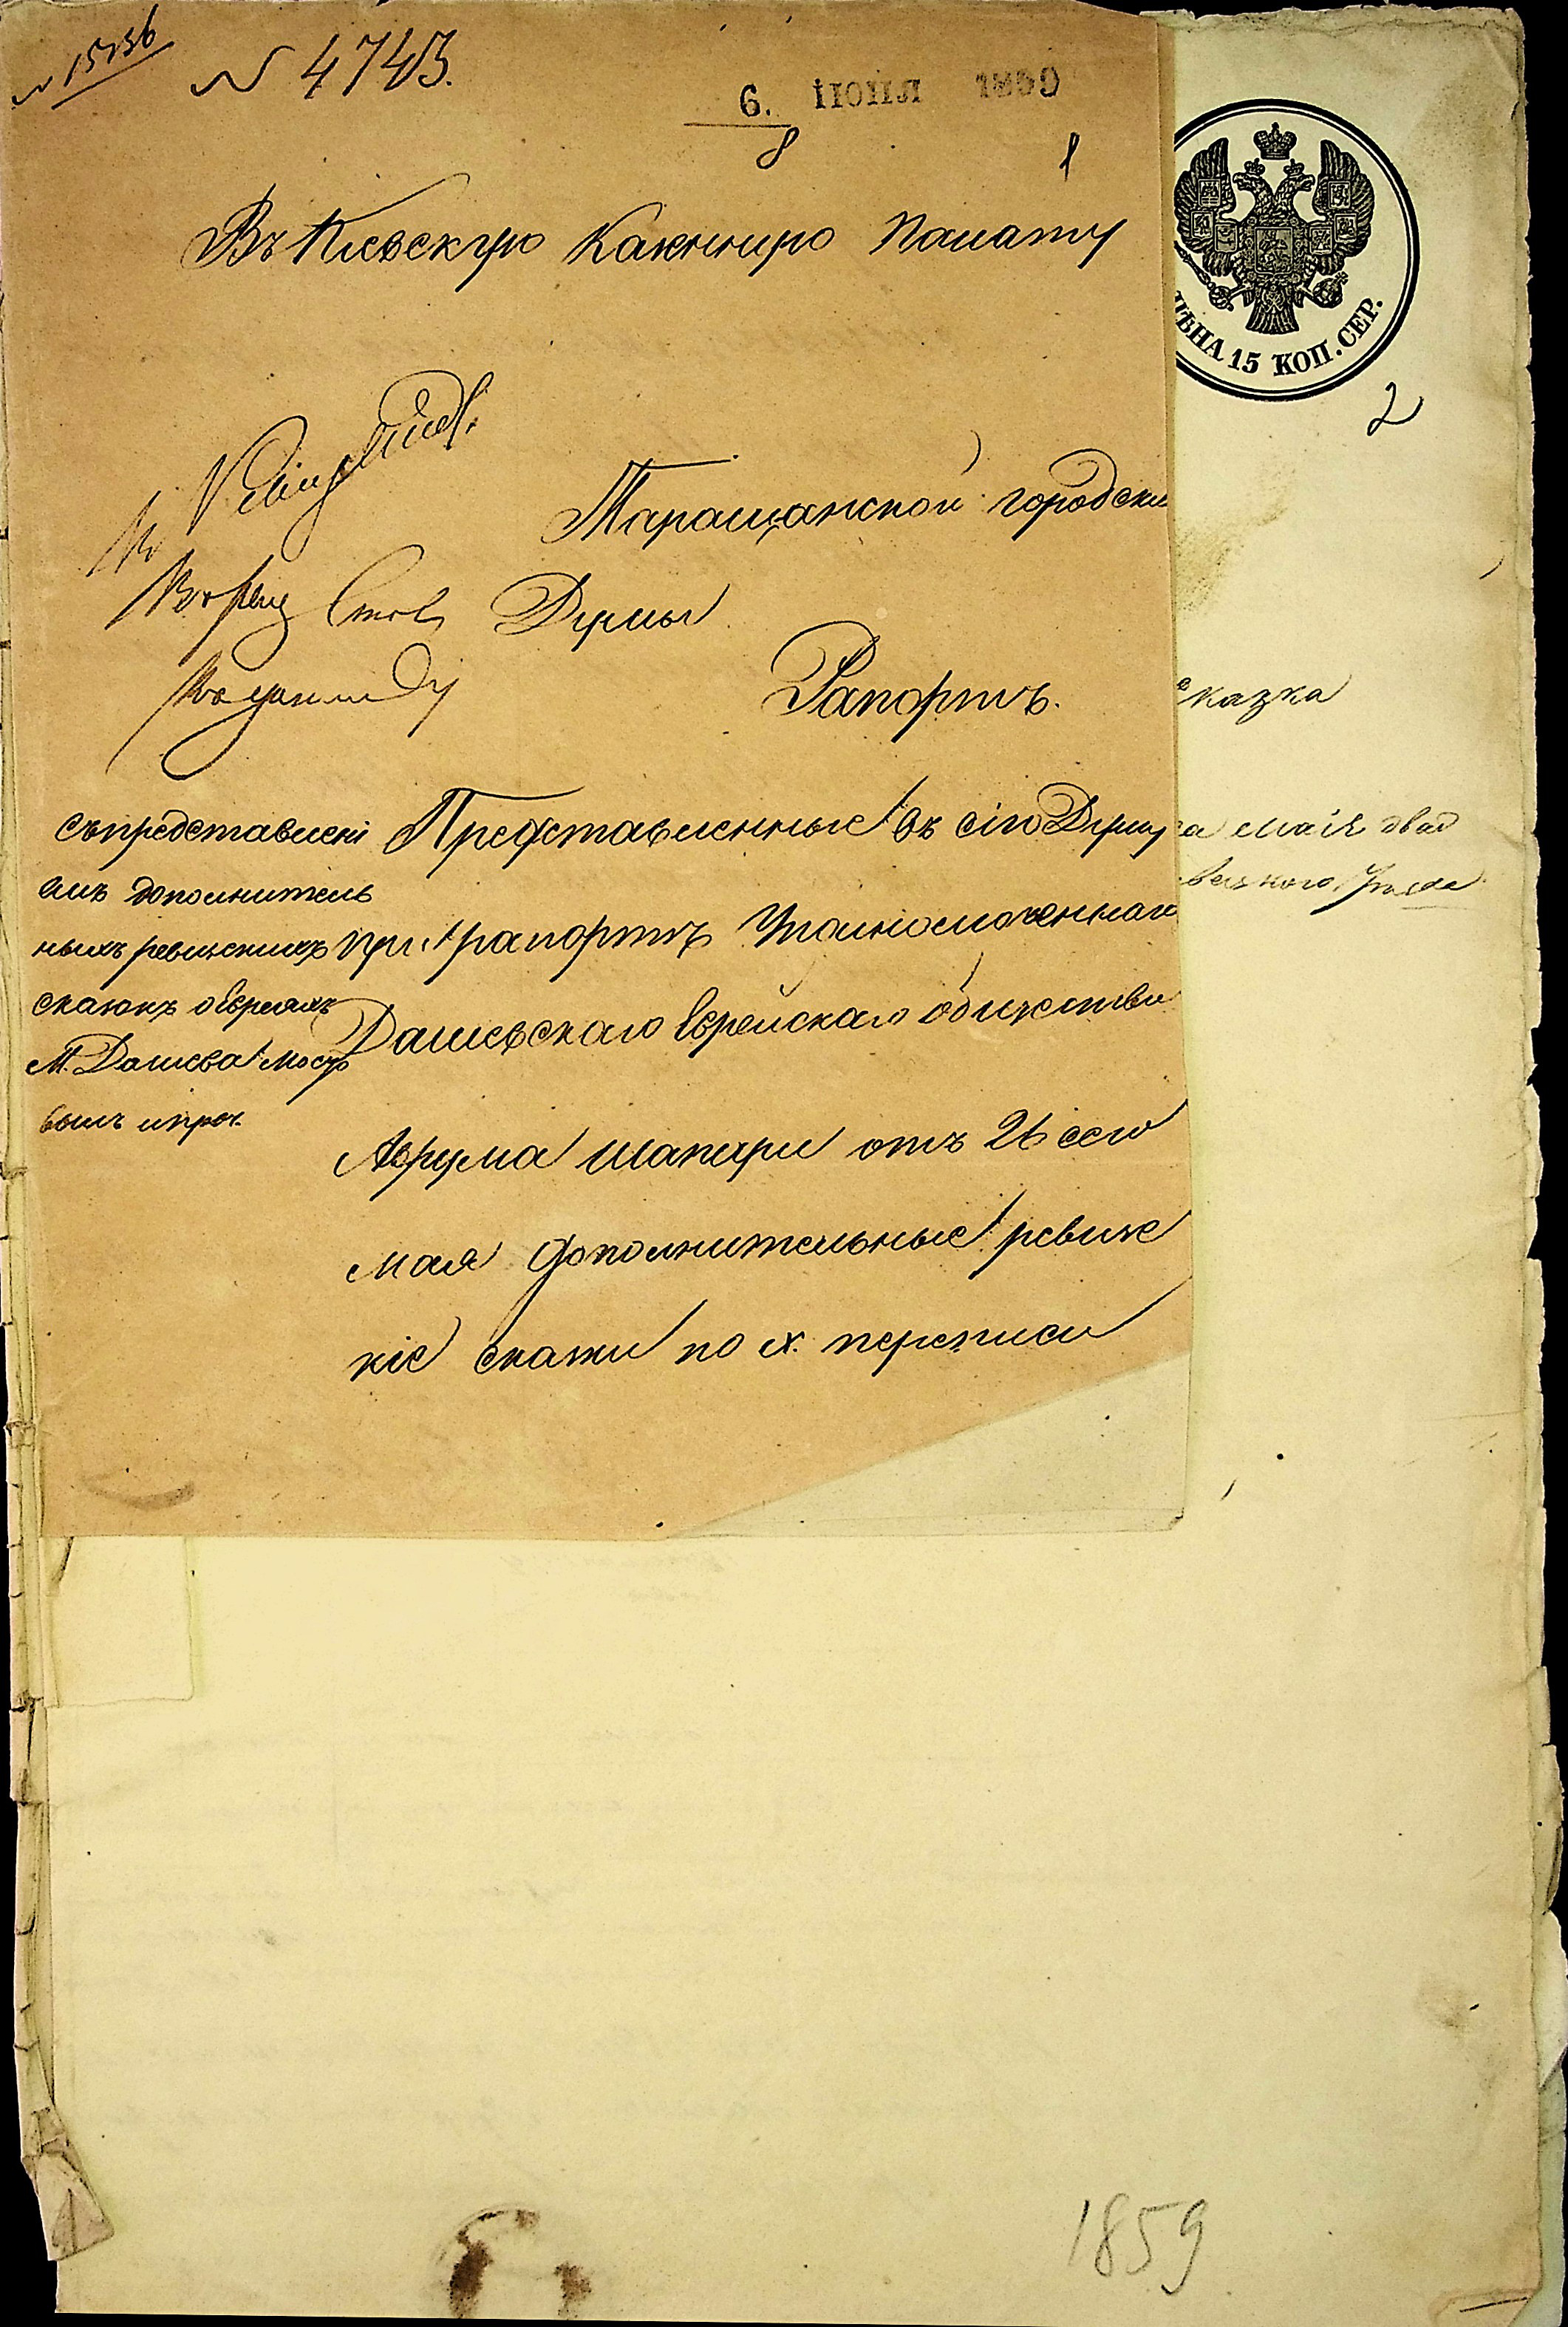 № 15136
№ 4743.
6. ІЮНЯ 1859
8
1
Въ Кіевскую Казенную Палату
ЦѢНА 15 КОП. СЕР.
2
Таращанской городской
Думы
Рапортъ.
съ представлені
емъ дополнитель
ныхъ ревизскихъ
сказокъ о евреяхъ
М. Дашева
вымъ и проч.
Представленные въ сію Думу
при рапортѣ Уполномоченнаго
Дашевскаго Еврейскаго общества
Аврума Шапири отъ 26 сего
мая дополнительные ревизс
кіе сказки по X. переписи
сказка
маія двад
1859